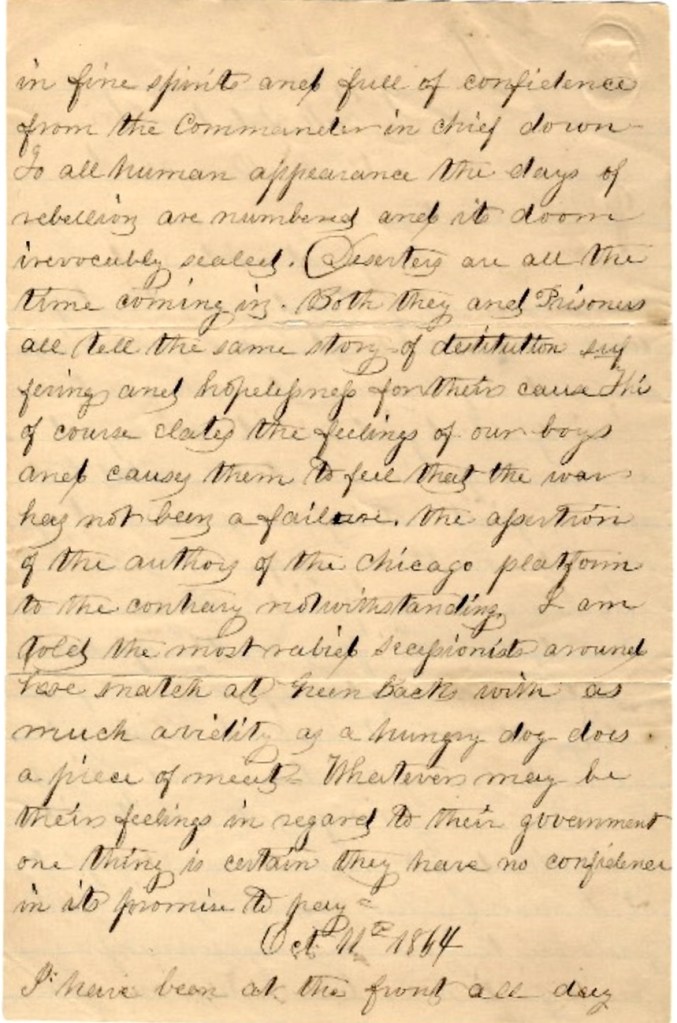 in fine spirits and full of confidence
from the Commander in chief down
To all human appearance the days of
rebellion are numbered and it doom
irevocably sealed. Deserters are all the
time coming in. Both they and Prisoners
all tell the same story of destitution suf
fering and hopelessness for their cause This
of course elates the feelings of our boys
and causes them to feel that the war
has not been a failure, the assertion
of the authors of the Chicago platform
to the contrary notwithstanding. I am
told the most rabid secessionists around
here snatch at Green Backs with as
much avidity as a hungry dog does
a piece of meat = Whatever may be
their feelings in regard to their government
one thing is certain they have no confidence
in its promise to pay =
Oct 11th 1864
I have been at the front all day